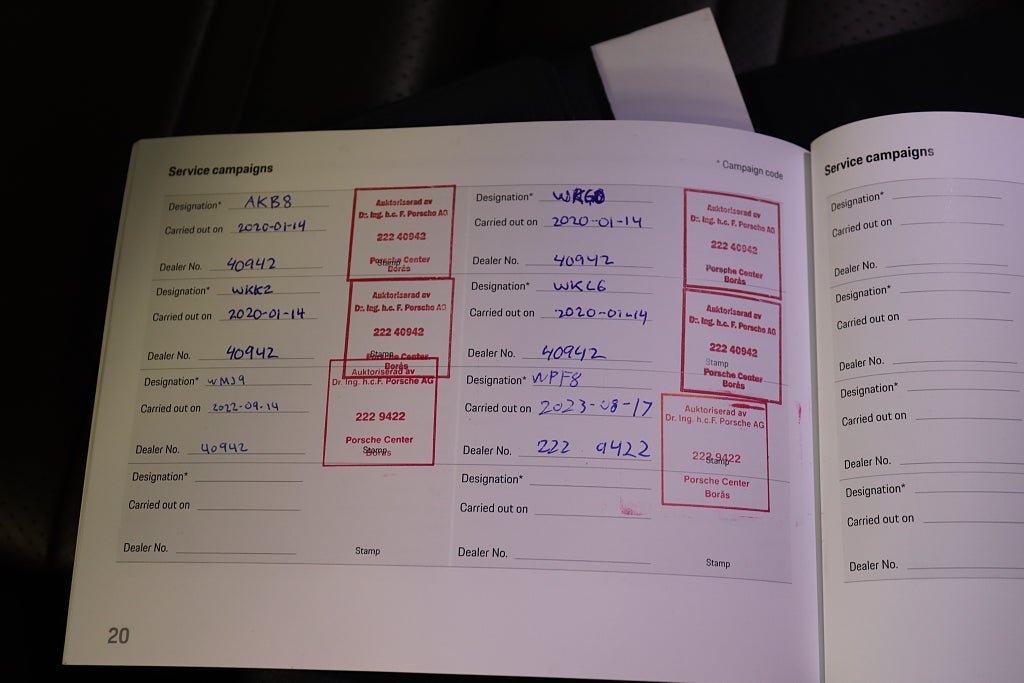 Service campaigns
* Campaign code
Designation* AKB8
Carried out on 2020-01-14
Dealer No. 40942
Auktoriserad av
Dr. Ing. h.c. F. Porsche AG
222 40942
Stamp
Porsche Center
Borås
Designation*
Carried out on 2020-01-14
Dealer No. 40942
Auktoriserad av
Dr. Ing. h.c. F. Porsche AG
222 40942
Porsche Center
Borås
Designation* WKK2
Carried out on 2020-01-14
Dealer No. 40942
Auktoriserad av
Dr. Ing. h.c. F. Porsche AG
222 40942
Stamp
Porsche Center
Borås
Designation* WKL6
Carried out on 2020-01-14
Dealer No. 40942
Auktoriserad av
Dr. Ing. h.c. F. Porsche AG
222 40942
Stamp
Porsche Center
Borås
Designation* WMJ9
Carried out on 2022-09-14
Dealer No. 40942
Auktoriserad av
Dr. Ing. h.c.F. Porsche AG
222 9422
Porsche Center
Stamp
Borås
Designation* WPF8
Carried out on 2023-08-17
Dealer No. 222 9422
Auktoriserad av
Dr. Ing. h.c.F. Porsche AG
222 9422
Stamp
Porsche Center
Borås
Designation*
Carried out on
Dealer No.
Stamp
Designation*
Carried out on
Dealer No.
Stamp
20
Service campaigns
Designation*
Carried out on
Dealer No.
Designation*
Carried out on
Dealer No.
Designation*
Carried out on
Dealer No.
Designation*
Carried out on
Dealer No.